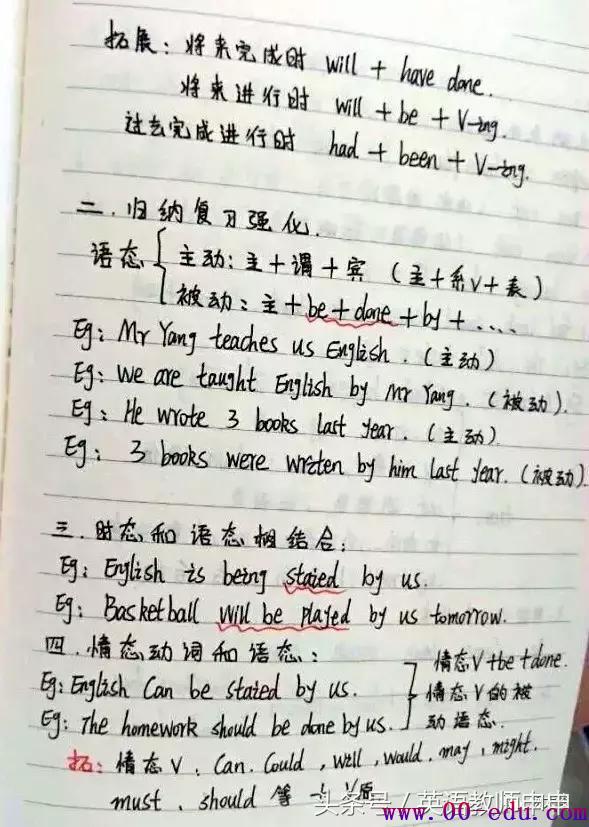 拓展：将来完成时 will + have done.
将来进行时 will + be + V-ing.
过去完成进行时 had + been + V-ing.
二．归纳复习强化．
语态 主动：主+谓+宾 （主+系V+表）
被动：主+be+done+by+....
Eg：Mr Yang teaches us English．（主动）
Eg：We are taught English by Mr Yang．（被动）．
Eg：He wrote 3 books last year．（主动）
Eg：3 books were written by him last year．（被动）
三．时态和语态相结合：
Eg：English is being stated by us.
Eg：Basketball will be played by us tomorrow.
四．情态动词和语态：
情态V+be+done.
Eg：English Can be stated by us.
情态V的被
Eg：The homework should be done by us.
动语态．
拓：情态V：Can．Could，will，would．may，might．
must．should 等 + V原
头条号／英语教师申申
www.00-edu.com